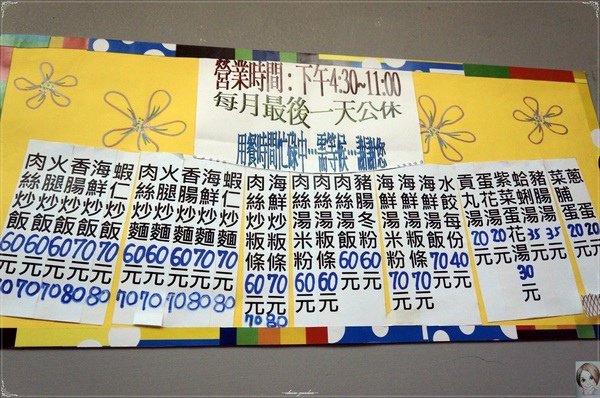 營業時間：下午4:30~11:00
每月最後一天公休
用餐時間忙碌中…需等候…謝謝您
肉絲炒飯60元70
火腿炒飯60元70
香腸炒飯60元70
海鮮炒飯70元80
蝦仁炒飯70元80
肉絲炒麵60元70
火腿炒麵60元70
香腸炒麵60元70
海鮮炒麵70元80
蝦仁炒麵70元80
肉絲炒粄條60元70
海鮮炒粄條70元80
肉絲湯米粉60元
肉絲湯粄條60元
肉絲湯飯60元
豬腸冬粉60元
海鮮湯米粉70元
海鮮湯粄條70元
海鮮湯飯70元
水餃每份40元
貢丸湯20元
蛋花湯20元
紫菜蛋花湯30元
蛤蜊湯35元
豬腸湯35元
菜脯蛋20元
蔥蛋20元